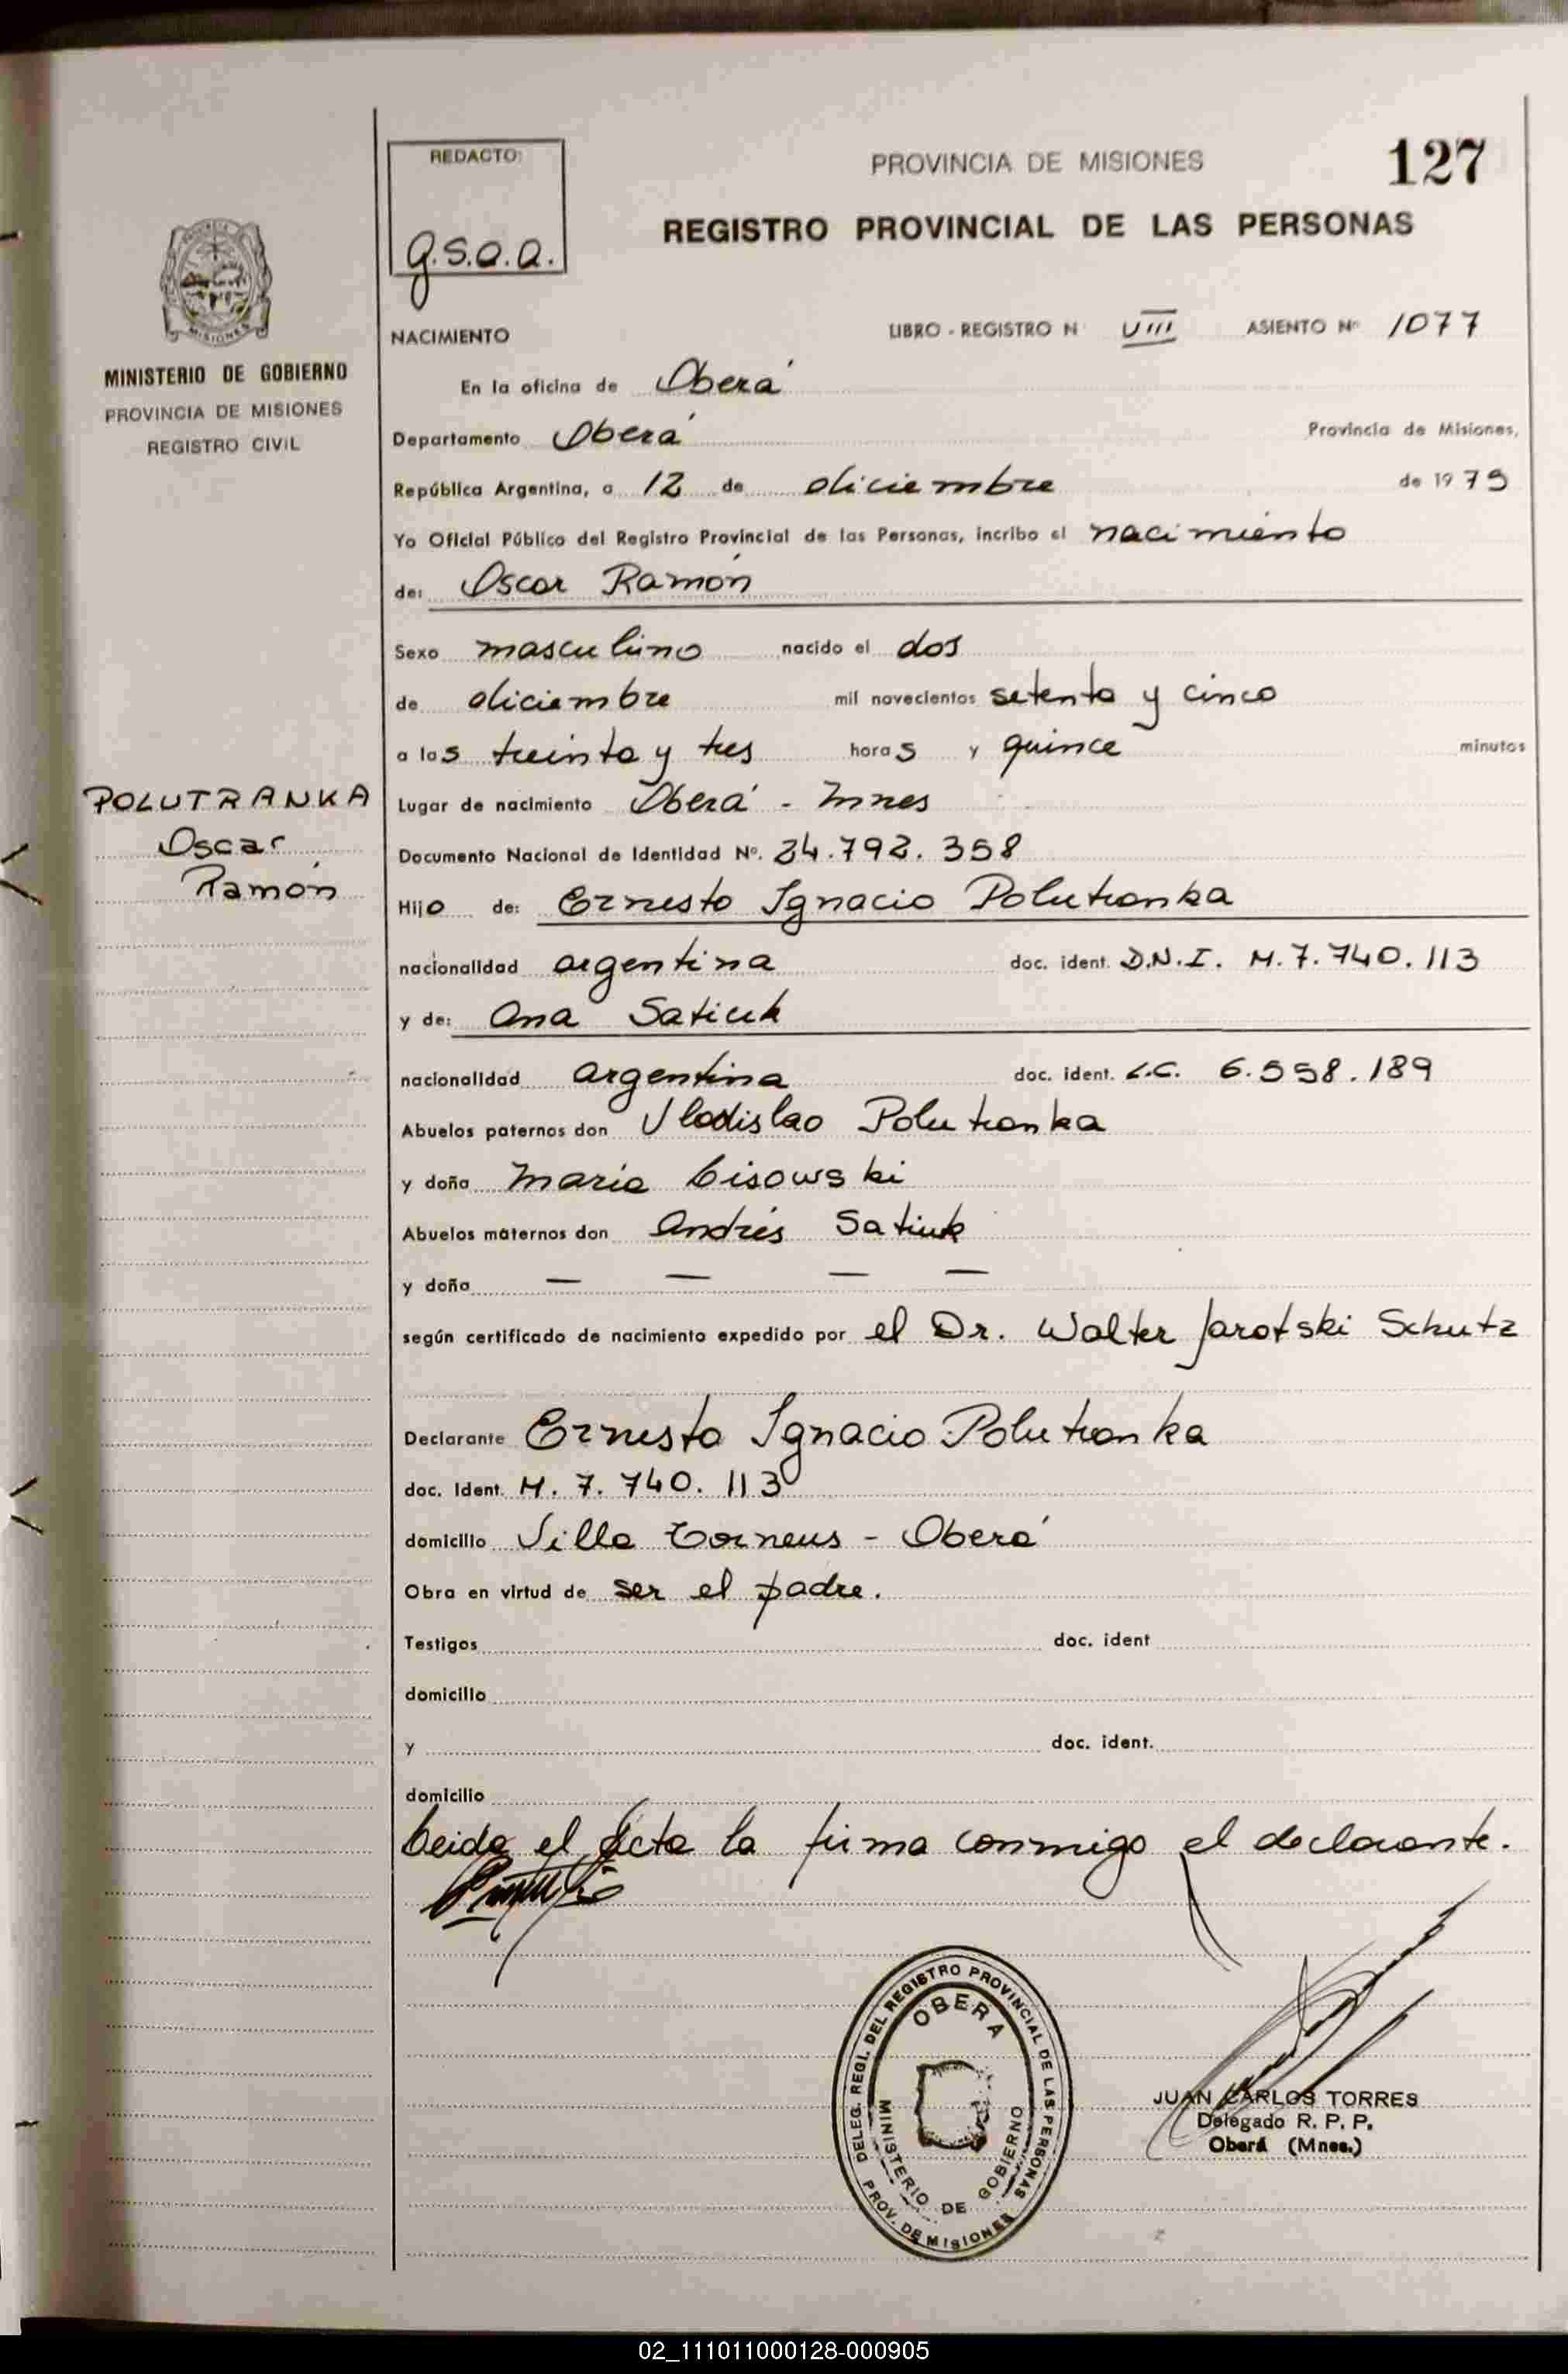 127
REDACTO:
g.s.a.a.
PROVINCIA DE MISIONES
REGISTRO PROVINCIAL DE LAS PERSONAS
MISIONES
MINISTERIO DE GOBIERNO
PROVINCIA DE MISIONES
REGISTRO CIVIL
NACIMIENTO LIBRO - REGISTRO N VIII ASIENTO Nº 1077
En la oficina de Oberá
Departamento Oberá Provincia de Misiones,
República Argentina, a 12 de diciembre de 1975
Yo Oficial Público del Registro Provincial de las Personas, incribo el nacimiento
de: Oscar Ramón
Sexo masculino nacido el dos
de diciembre mil novecientos setenta y cinco
a las treinta y tres horas y quince minutos
POLUTRANKA
Oscar
Ramón
Lugar de nacimiento Oberá - Mnes
Documento Nacional de Identidad Nº. 24.792.358
Hijo de: Ernesto Ignacio Polutranka
nacionalidad argentina doc. ident. D.N.I. M.7.740.113
y de: Ana Satiuk
nacionalidad argentina doc. ident. L.C. 6.558.189
Abuelos paternos don Vladislao Polutranka
y doña María Lisowski
Abuelos maternos don Andrés Satiuk
y doña — — — —
según certificado de nacimiento expedido por el Dr. Walter Jarotski Schutz
Declarante Ernesto Ignacio Polutranka
doc. Ident. M. 7. 740. 113
domicilio Villa Torneus - Oberá
Obra en virtud de ser el padre.
Testigos doc. ident
domicilio
y doc. ident.
domicilio
Leida el acta la firma conmigo el declarante.
DELEG. REGI. DEL REGISTRO PROVINCIAL DE LAS PERSONAS
OBERA
MINISTERIO DE GOBIERNO
PROV. DE MISIONES
JUAN CARLOS TORRES
Delegado R. P. P.
Oberá (Mnes.)
02_111011000128-000905